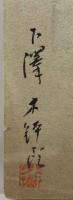 下澤木鉢郎